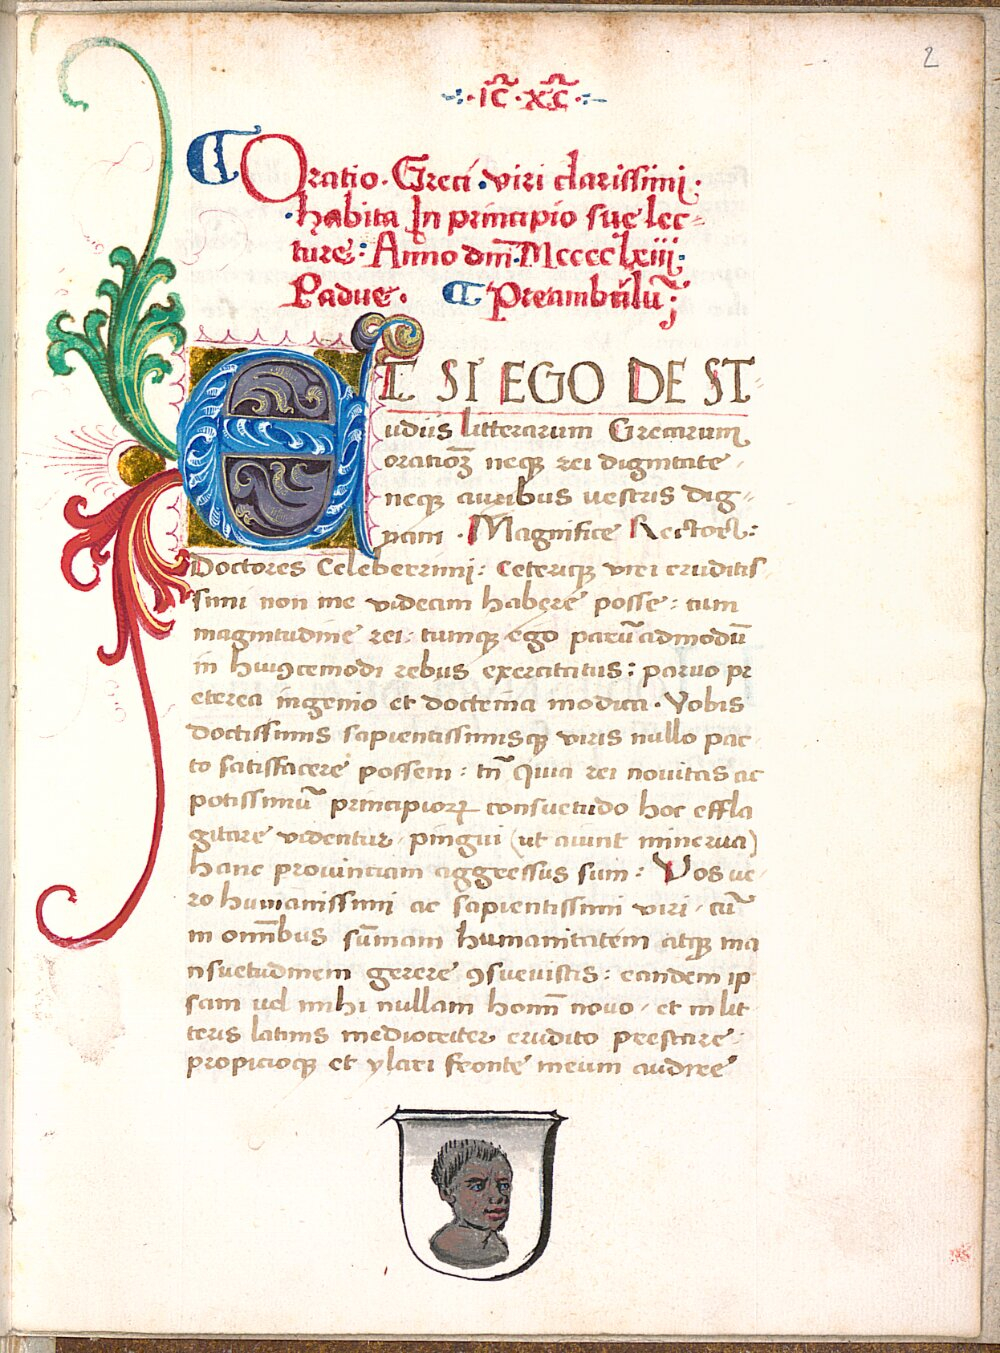 2
·IC̃·XC̃·
Oratio· Greci ·viri clarissimi·
·habita In principio sue lec-
ture: Anno dnĩ·Mcccclxiii:
Padue· Preambulũ;
ET SI EGO DE ST-
udiis litterarum Grecarum
orationꝫ neqꝫ rei dignitate
neqꝫ auribus uestris dig-
nam · Magnifice Rector:
Doctores Celeberrimi: Ceteriqꝫ viri eruditis
simi non me videam habere posse: tum
magnitudine rei: tumqꝫ ego parũ admodũ
in huiꝯcemodi rebus exercitatus: paruo pr
eterea ingenio et doctrina modica · Vobis
doctissimis sapientissimisqꝫ viris nullo pac
to satisfacere possem: tñ quia rei nouitas ac
potissimũ principioꝝ consuetudo hoc effla
gitare videntur· pingui (ut aiunt minerua)
hanc prouinciam aggressus sum: Vos ue-
ro humanissimi ac sapientissimi viri· cũ
in omñibus sũmam humanitatem atqꝫ ma
nsuetudinem gerere ꝯsueuistis: eandem ip
sam uel mihi nullam homĩ nouo· et in lit
teris latinis mediocriter erudito prestare·
propicioqꝫ et ylari fronte meum audire